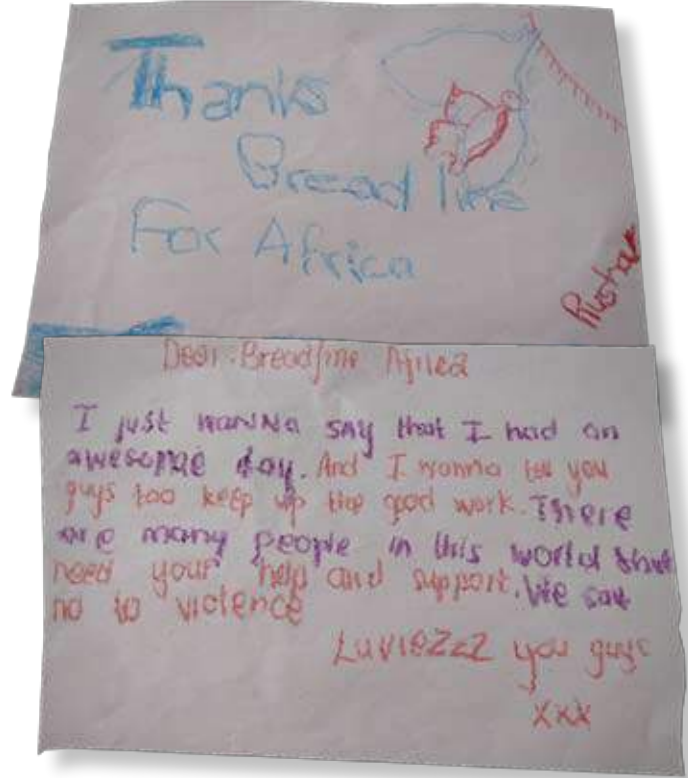 Thanks
Bread line
For Africa
Dear Breadline Africa
I just wanna say that I had an
awesome day. And I wanna tell you
guys too keep up the good work. There
are many people in this world that
need your help and support. We say
no to violence
LuviezzZ you guys
xxx